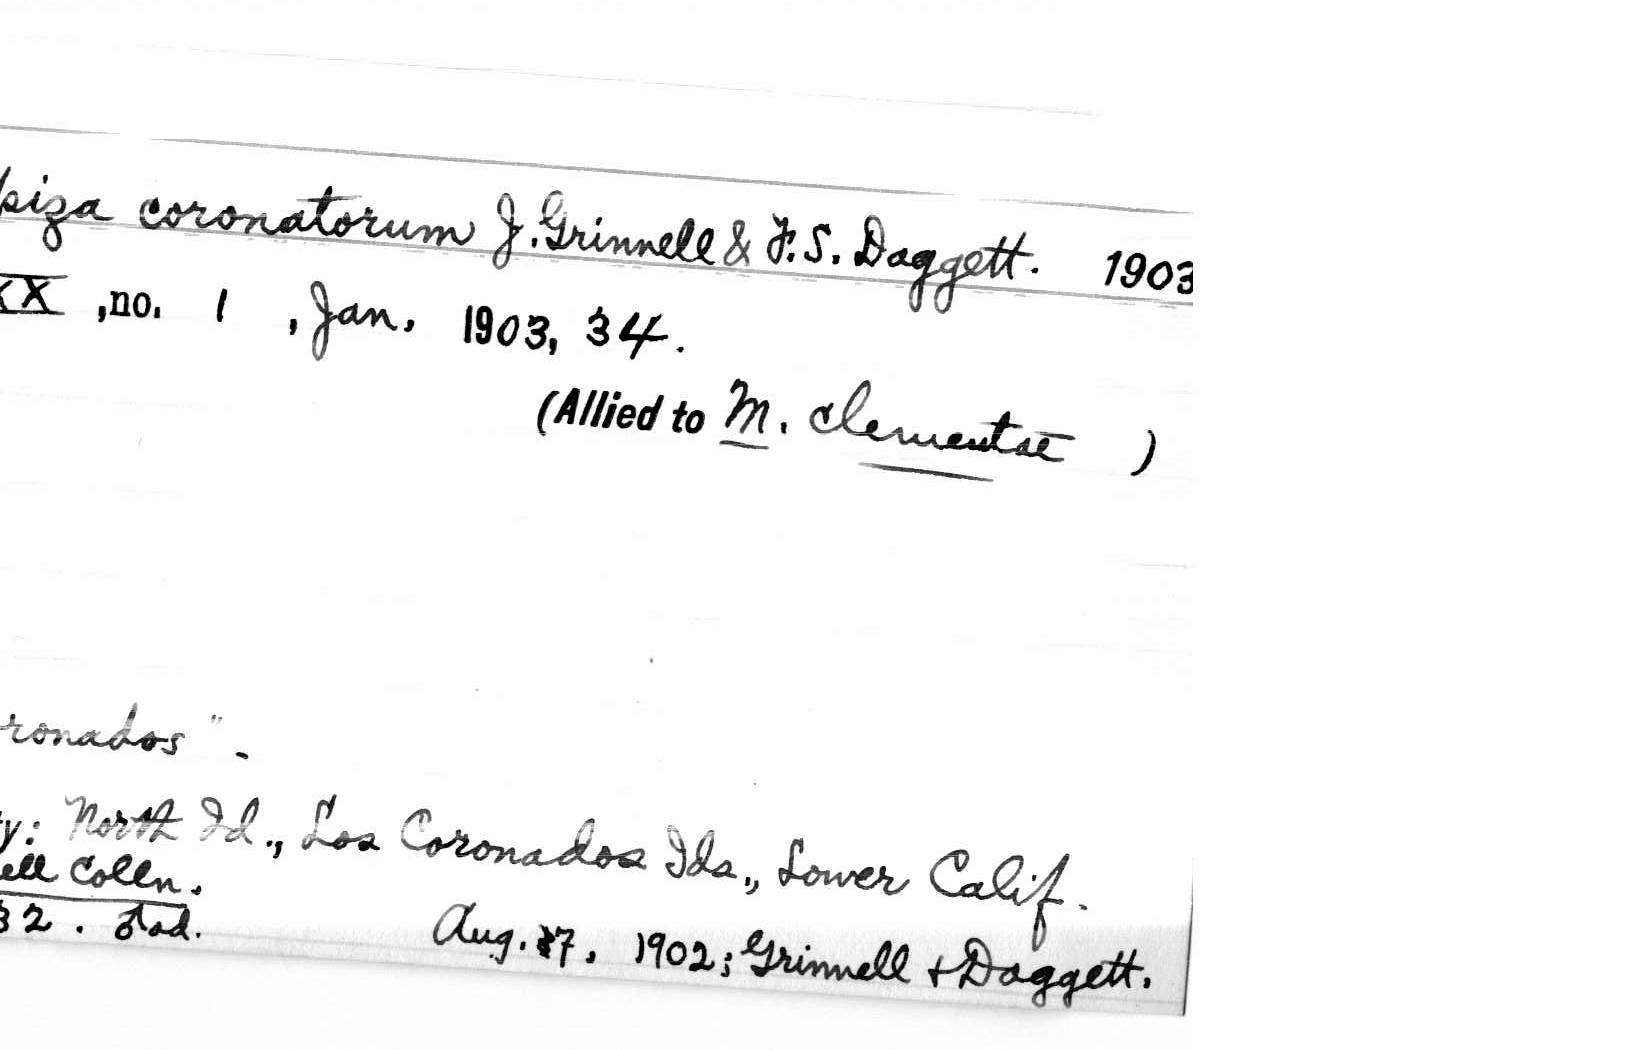 piza coronatorum J. Grinnell & F. S. Daggett. 1903
XX ,no. 1 , Jan. 1903, 34.
(Allied to M. clementae )
ronados".
y: North Id., Los Coronados Ids., Lower Calif.
ell Colln.
32. ad. Aug. 7, 1902; Grinnell + Daggett.